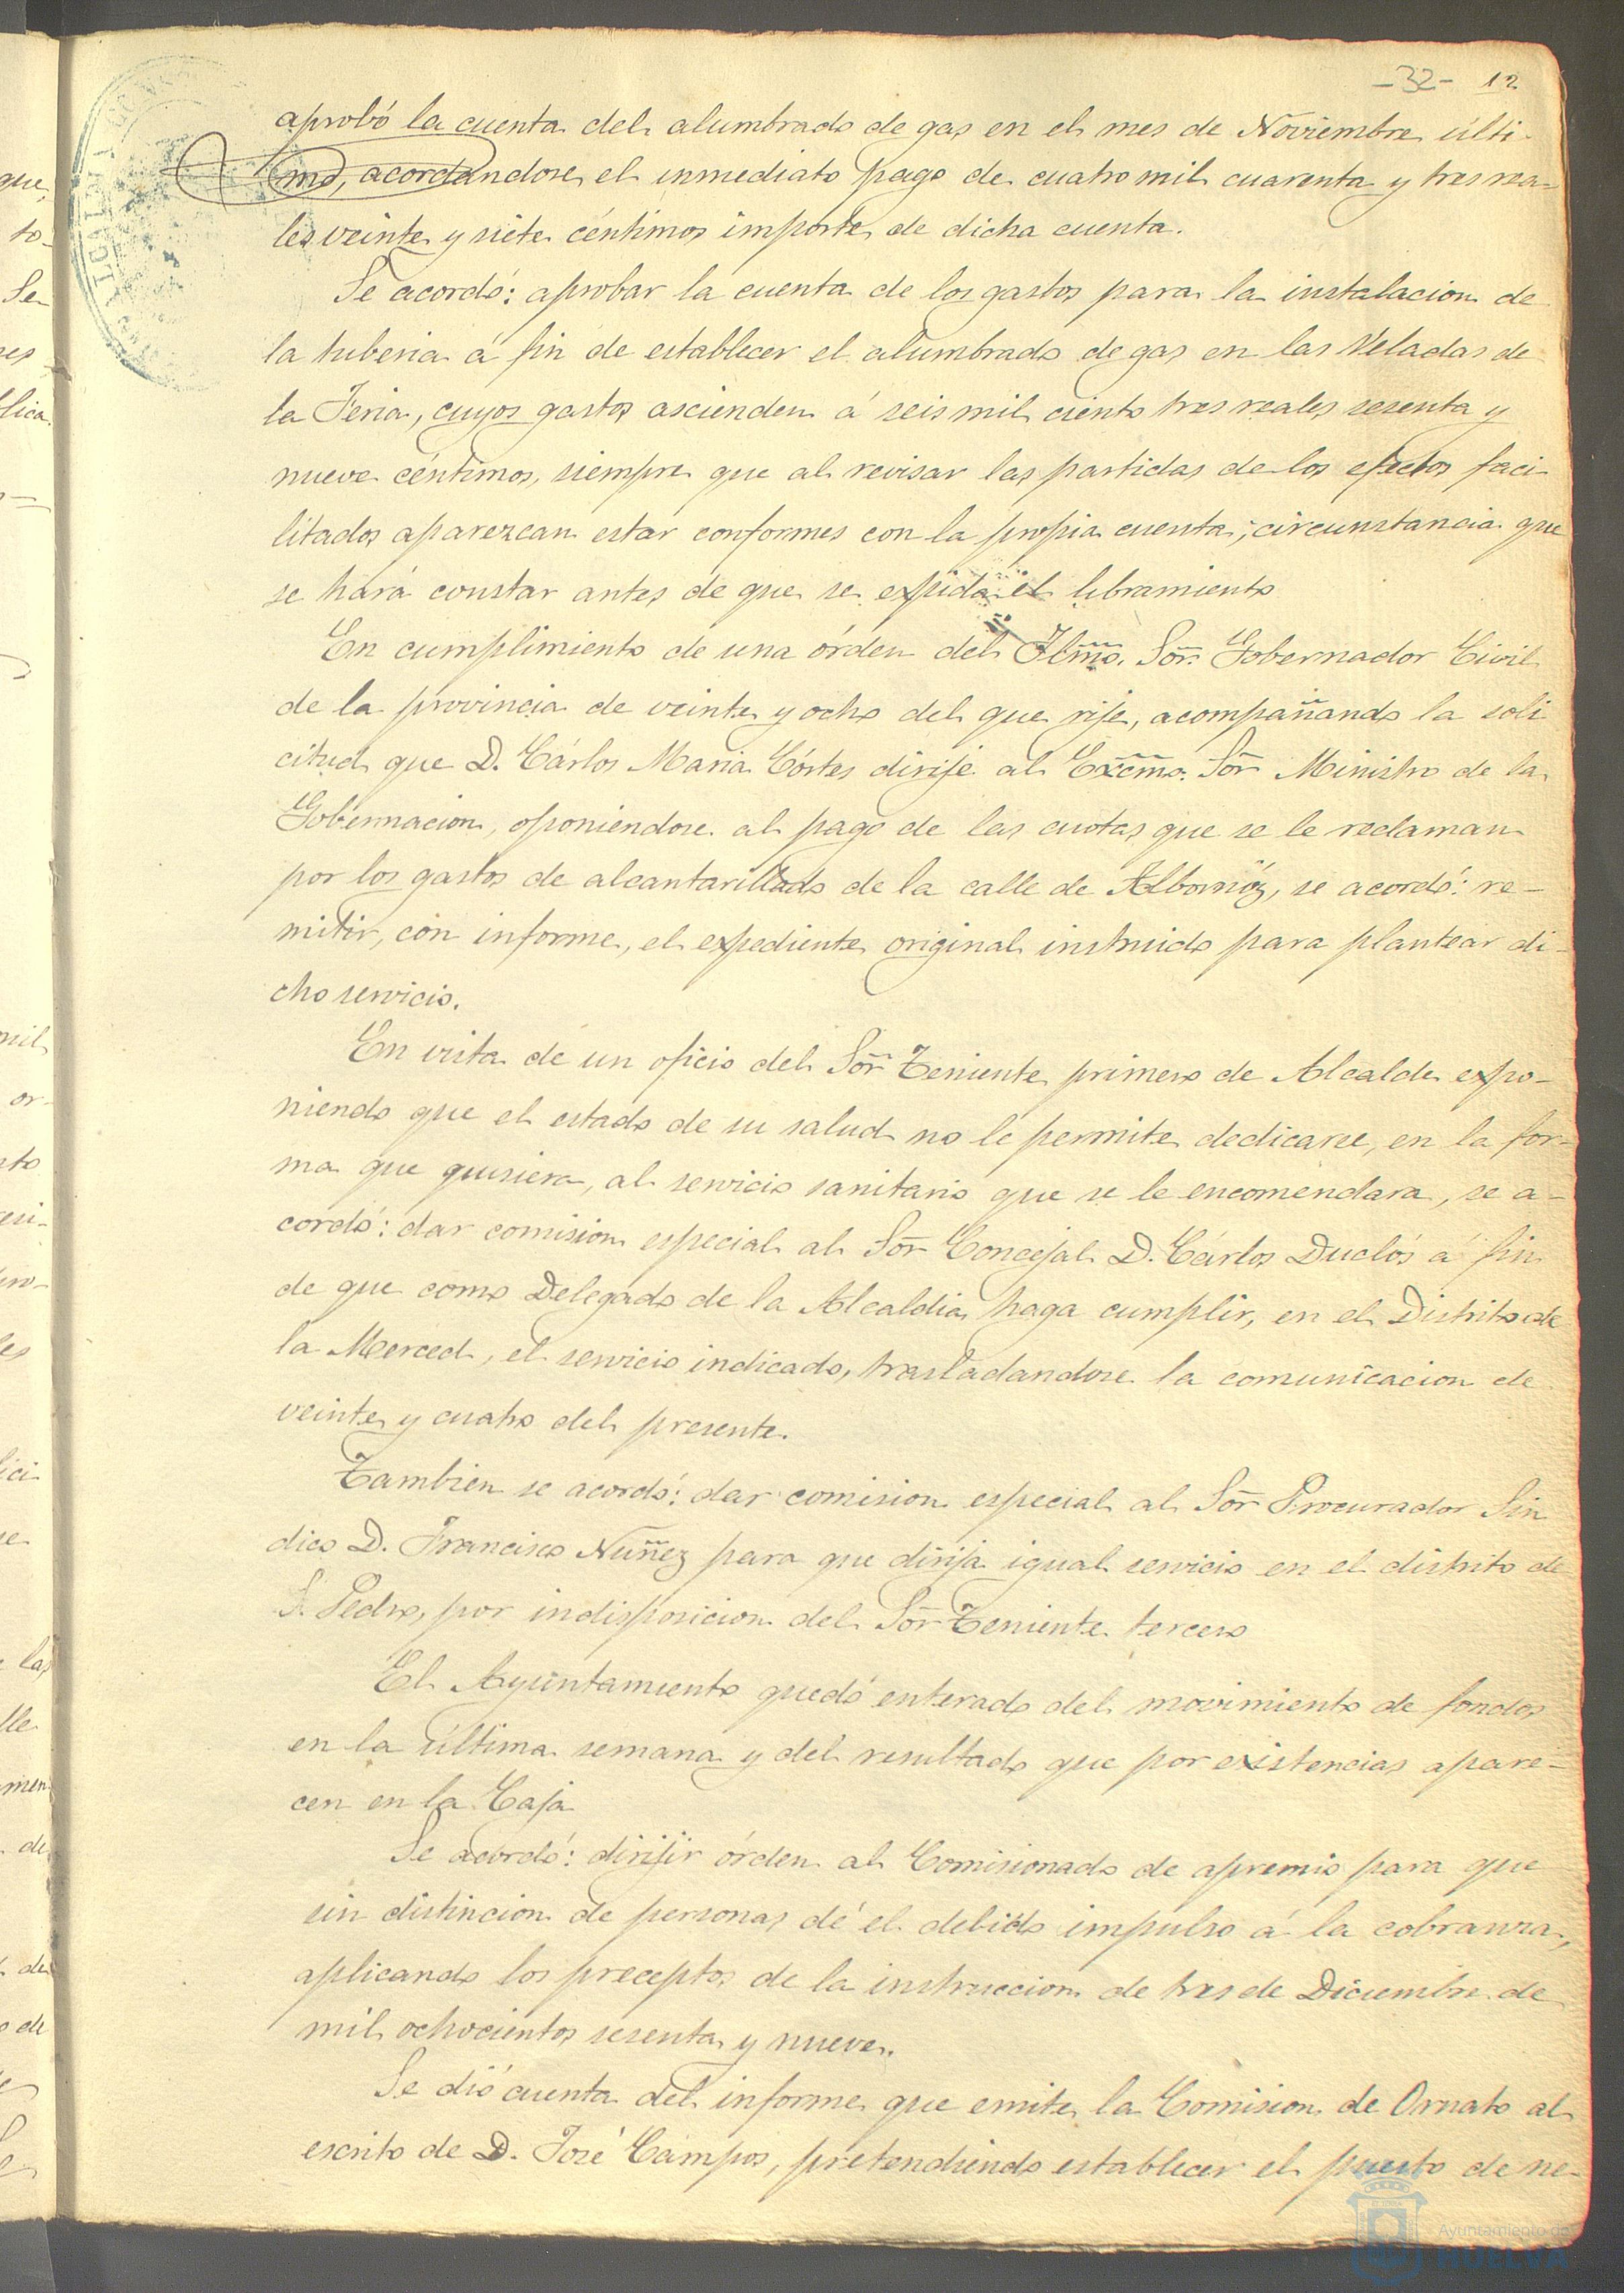 -32- 12
aprobó la cuenta del alumbrado de gas en el mes de Noviembre últi-
mo, acordandose el inmediato pago de cuatro mil cuarenta y tres rea-
les veinte y siete céntimos importe de dicha cuenta.
Se acordó: aprobar la cuenta de los gastos para la instalacion de
la tuberia á fin de establecer el alumbrado de gas en las Veladas de
la Feria, cuyos gastos ascienden á seis mil ciento tres reales sesenta y
nueve céntimos, siempre que al revisar las partidas de los efectos faci-
litados aparezcan estar conformes con la propia cuenta; circunstancia que
se hará constar antes de que se expida el libramiento
En cumplimiento de una órden del Ilmo. Sor. Gobernador Civil
de la provincia de veinte y ocho del que rije, acompañando la soli
citud que D. Cárlos Maria Córtes dirije al Excmo. Sor Ministro de la
Gobernacion, oponiendose al pago de las cuotas que se le reclaman
por los gastos de alcantarillado de la calle de Albornóz, se acordó: re-
mitir, con informe, el expediente original instruido para plantear di-
cho servicio.
En vista de un oficio del Sor Teniente primero de Alcalde expo-
niendo que el estado de su salud no le permite dedicarse, en la for-
ma que quisiera, al servicio sanitario que se le encomendara, se a-
cordó: dar comision especial al Sor Concejal D. Cárlos Duclós á fin
de que como Delegado de la Alcaldia haga cumplir, en el Distrito de
la Merced, el servicio indicado, trasladandose la comunicacion de
veinte y cuatro del presente.
Tambien se acordó: dar comision especial al Sor Procurador Sin
dico D. Francisco Nuñez para que dirija igual servicio en el distrito de
S. Pedro, por indisposicion del Sor Teniente tercero
El Ayuntamiento quedó enterado del movimiento de fondos
en la última semana y del resultado que por existencias apare-
cen en la Caja
Se acordó: dirijir órden al Comisionado de apremio para que
sin distincion de personas dé el debido impulso á la cobranza,
aplicando los preceptos de la instruccion de tres de Diciembre de
mil ochocientos sesenta y nueve.
Se dió cuenta del informe que emite la Comision de Ornato al
escrito de D. José Campos, pretendiendo establecer el puesto de ne-
Ayuntamiento de
HUELVA